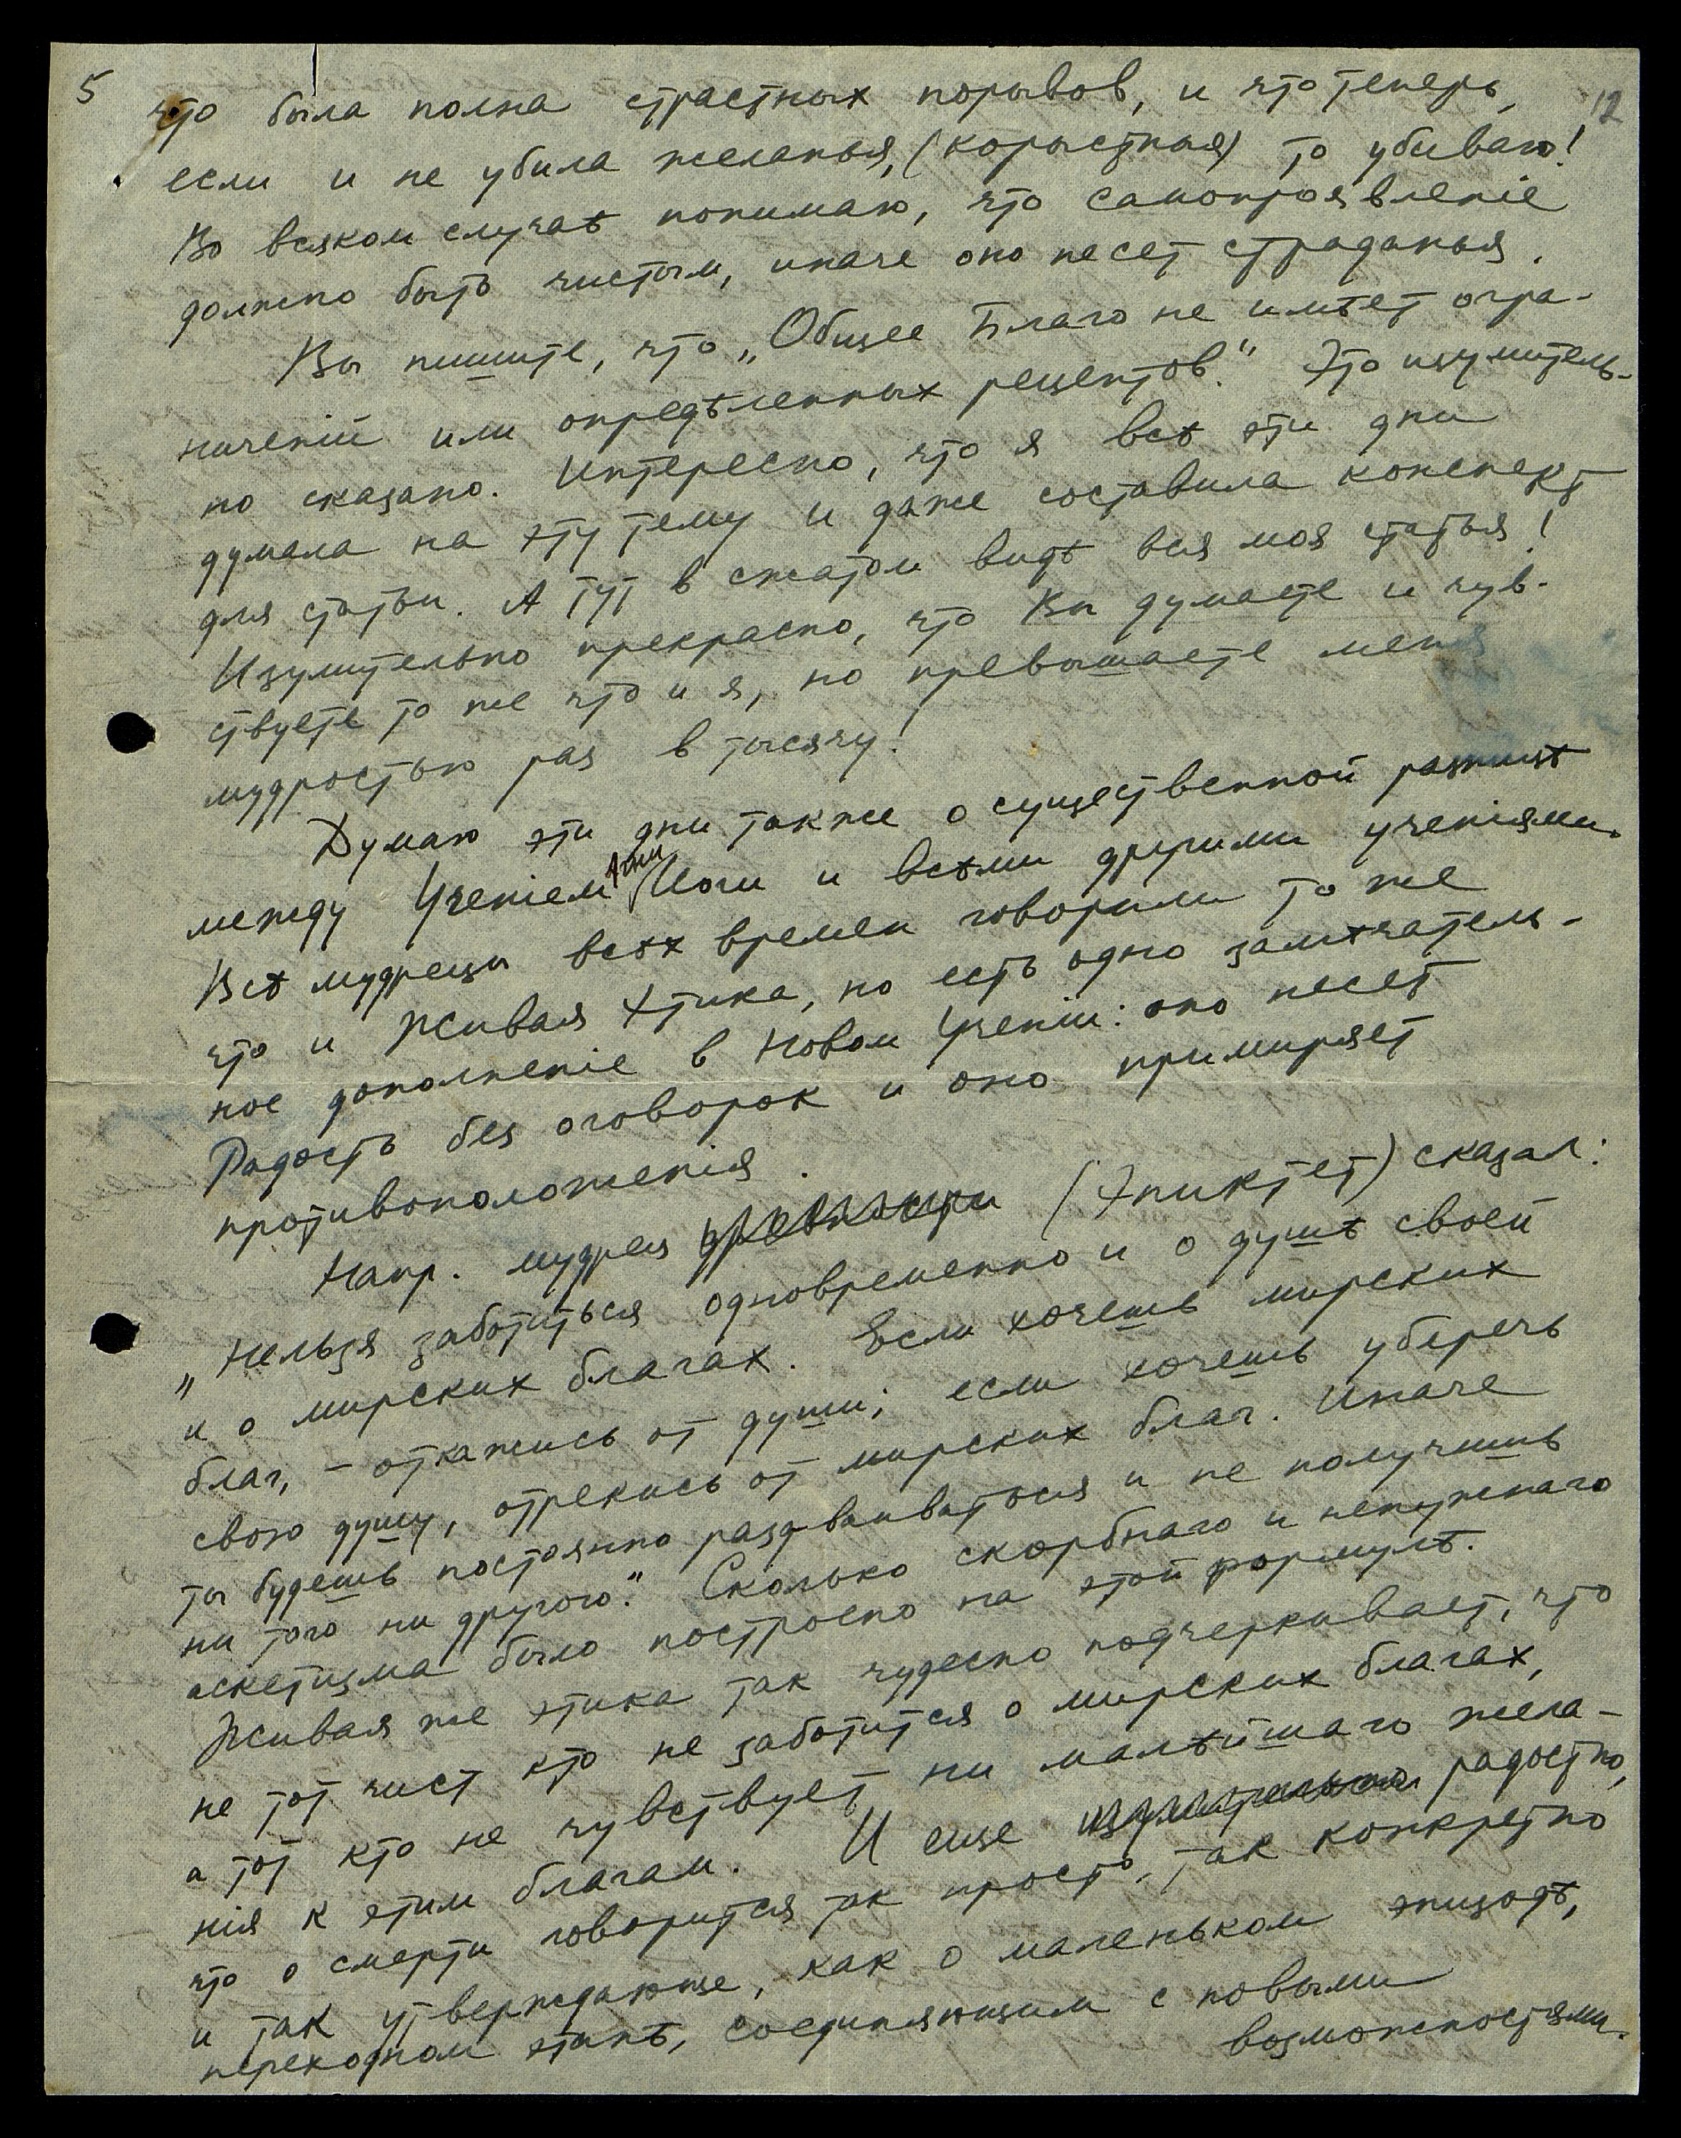 5
12
что была полна страстных порывов, и что теперь,
если и не убила желанья, (корыстныя) то убиваю!
Во всяком случаѣ понимаю, что самопроявленіе
должно быть чистым, иначе оно несет страданья.
Вы пишите, что „Общее Благо не имѣет огра-
ниченій или опредѣленных рецептов." Это изумитель-
но сказано. Интересно, что я всѣ эти дни
думала на эту тему и даже составила конспект
для статьи. А тут в сжатом видѣ вся моя статья!
Изумительно прекрасно, что Вы думаете и чув-
ствуете то же что и я, но превышаете меня
мудростью раз в тысячу!
Думаю эти дни также о существенной разницѣ
между Ученіем Агни Йоги и всѣми другими ученіями.
Всѣ мудрецы всѣх времен говорили то же
что и Живая Этика, но есть одно замѣчатель-
ное дополненіе в Новом Ученіи: оно несет
Радость без оговорок и оно примиряет
противоположенія.
Напр. мудрец древности (Эпиктет) сказал:
„Нельзя заботиться одновременно и о душѣ своей
и о мирских благах. Если хочешь мирских
благ, – откажись от души; если хочешь уберечь
свою душу, отрекись от мирских благ. Иначе
ты будешь постоянно раздваиваться и не получишь
ни того ни другого." Сколько скорбнаго и ненужнаго
аскетизма было построено на этой формулѣ.
Живая же этика так чудесно подчеркивает, что
не тот чист кто не заботится о мирских благах,
а тот кто не чувствует ни малѣйшаго жела-
нія к этим благам. И еще изумительно радостно,
что о смерти говорится так просто, так конкретно
и так утверждающе, как о маленьком эпизодѣ,
переходном этапѣ, соединяющим с новыми
возможностями.